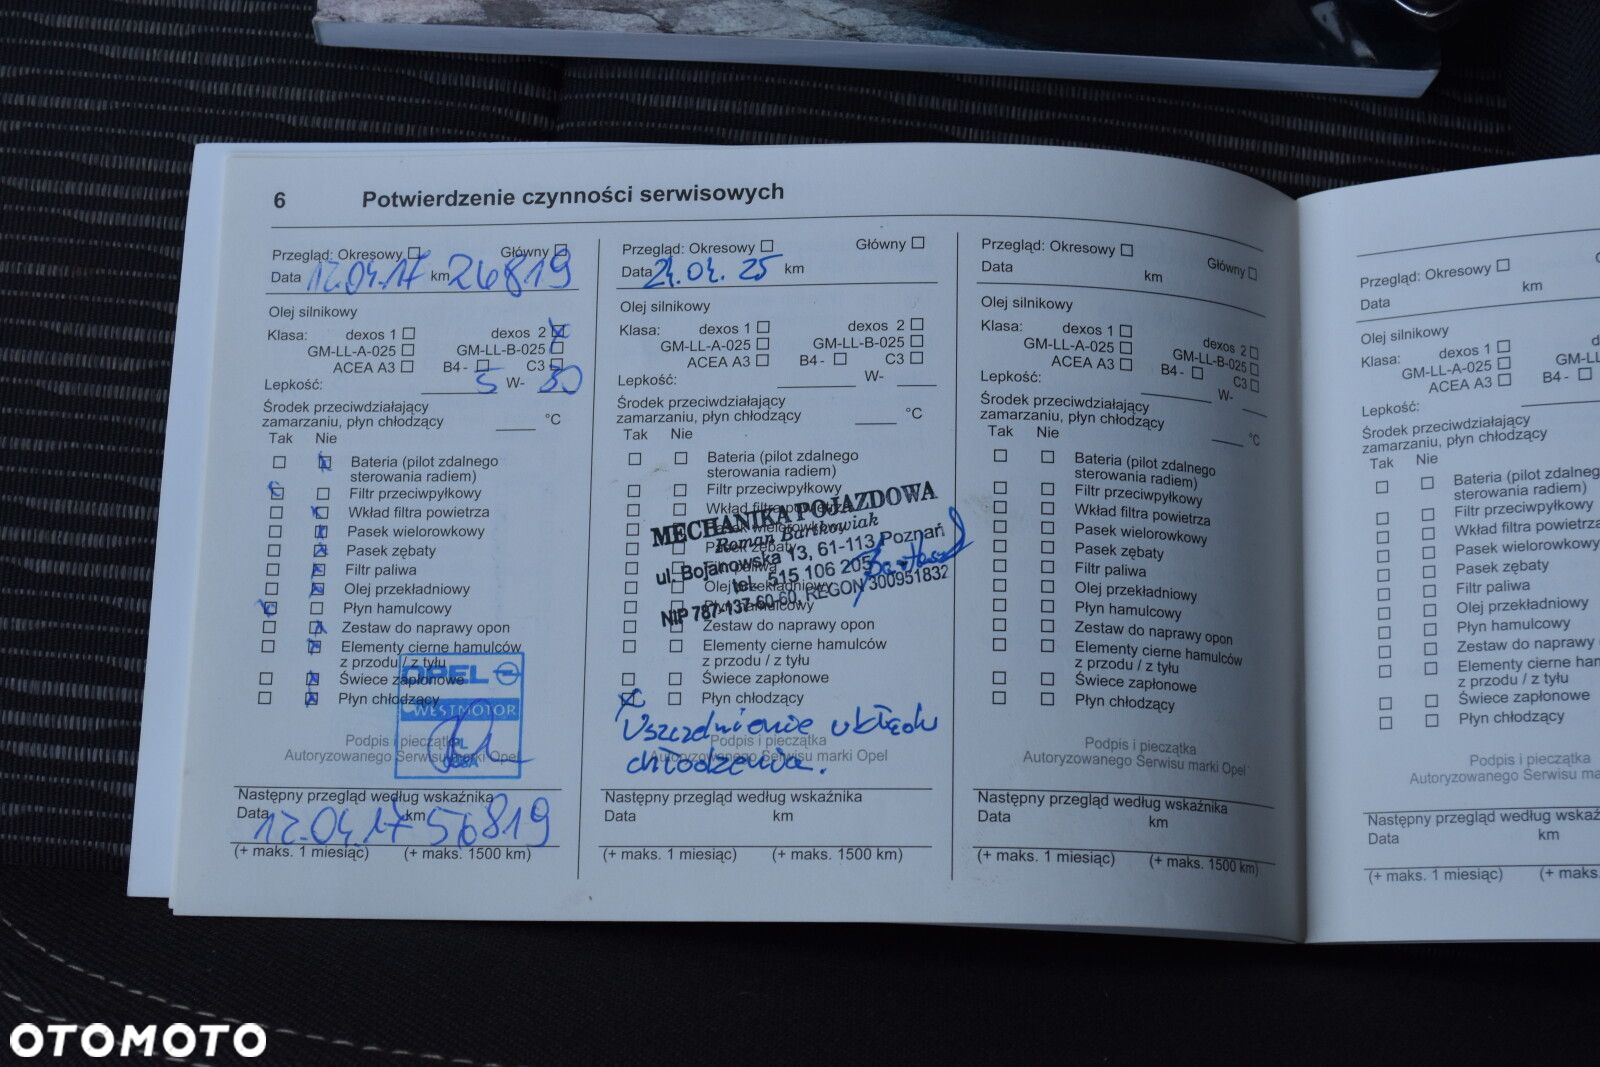 6 Potwierdzenie czynności serwisowych
Przegląd: Okresowy Główny
Data 12.04.17 km 26819
Olej silnikowy
Klasa: dexos 1 dexos 2
GM-LL-A-025 GM-LL-B-025
ACEA A3 B4- C3
Lepkość: 5 W- 30
Środek przeciwdziałający
zamarzaniu, płyn chłodzący °C
Tak Nie
Bateria (pilot zdalnego
sterowania radiem)
Filtr przeciwpyłkowy
Wkład filtra powietrza
Pasek wielorowkowy
Pasek zębaty
Filtr paliwa
Olej przekładniowy
Płyn hamulcowy
Zestaw do naprawy opon
Elementy cierne hamulców
z przodu / z tyłu
Świece zapłonowe
Płyn chłodzący
OPEL
WESTMOTOR
PL
Podpis i pieczątka
Autoryzowanego Serwisu marki Opel
Następny przegląd według wskaźnika
Data 12.04.17 km 56819
(+ maks. 1 miesiąc) (+ maks. 1500 km)
Przegląd: Okresowy Główny
Data 24.04.25 km
Olej silnikowy
Klasa: dexos 1 dexos 2
GM-LL-A-025 GM-LL-B-025
ACEA A3 B4- C3
Lepkość: W-
Środek przeciwdziałający
zamarzaniu, płyn chłodzący °C
Tak Nie
Bateria (pilot zdalnego
sterowania radiem)
Filtr przeciwpyłkowy
Wkład filtra powietrza
Pasek wielorowkowy
Pasek zębaty
Filtr paliwa
Olej przekładniowy
Płyn hamulcowy
MECHANIKA POJAZDOWA
Roman Bartkowiak
ul. Bojanowska 13, 61-113 Poznań
tel. 515 106 205
NIP 787-137-60-60, REGON 300951832
Zestaw do naprawy opon
Elementy cierne hamulców
z przodu / z tyłu
Świece zapłonowe
Płyn chłodzący
Uszczelnienie układu
chłodzenia.
Podpis i pieczątka
Autoryzowanego Serwisu marki Opel
Następny przegląd według wskaźnika
Data km
(+ maks. 1 miesiąc) (+ maks. 1500 km)
Przegląd: Okresowy Główny
Data km
Olej silnikowy
Klasa: dexos 1 dexos 2
GM-LL-A-025 GM-LL-B-025
ACEA A3 B4- C3
Lepkość: W-
Środek przeciwdziałający
zamarzaniu, płyn chłodzący °C
Tak Nie
Bateria (pilot zdalnego
sterowania radiem)
Filtr przeciwpyłkowy
Wkład filtra powietrza
Pasek wielorowkowy
Pasek zębaty
Filtr paliwa
Olej przekładniowy
Płyn hamulcowy
Zestaw do naprawy opon
Elementy cierne hamulców
z przodu / z tyłu
Świece zapłonowe
Płyn chłodzący
Podpis i pieczątka
Autoryzowanego Serwisu marki Opel
Następny przegląd według wskaźnika
Data km
(+ maks. 1 miesiąc) (+ maks. 1500 km)
Przegląd: Okresowy
Data km
Olej silnikowy
Klasa: dexos 1 dexos
GM-LL-A-025 GM-LL
ACEA A3 B4-
Lepkość:
Środek przeciwdziałający
zamarzaniu, płyn chłodzący
Tak Nie
Bateria (pilot zdalnego
sterowania radiem)
Filtr przeciwpyłkowy
Wkład filtra powietrza
Pasek wielorowkowy
Pasek zębaty
Filtr paliwa
Olej przekładniowy
Płyn hamulcowy
Zestaw do naprawy
Elementy cierne ham
z przodu / z tyłu
Świece zapłonowe
Płyn chłodzący
Podpis i pieczątka
Autoryzowanego Serwisu
Następny przegląd według wskaź
Data km
(+ maks. 1 miesiąc) (+ maks.
OTOMOTO